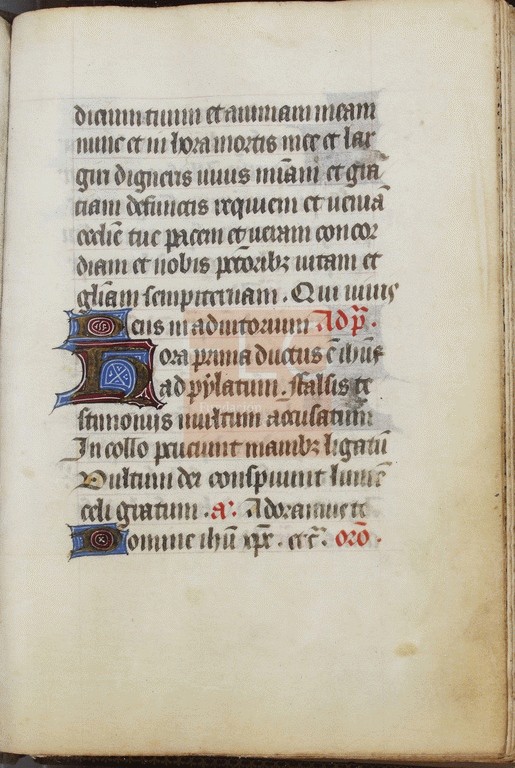 dicium tuum et animam meam
nunc et in hora mortis mee et lar
giri digneris uiuis miãm et gra
tiam defunctis requiem et ueniã
ecclie tue pacem et ueram concor
diam et nobis pctoribꝫ uitam et
gliam sempiternam . Qui uiuis
Deus in adiutorium Ad p̃.
Hora prima ductus ẽ ihus
ad pylatum . ffalsis te
stimoniis multum accusatum
In collo percutiunt manibꝫ ligatũ
Uultum dei conspuunt lumẽ
celi gratum . a᷒. Adoramus te
Domine ihũ xp̃e . et c̃ . orõ .